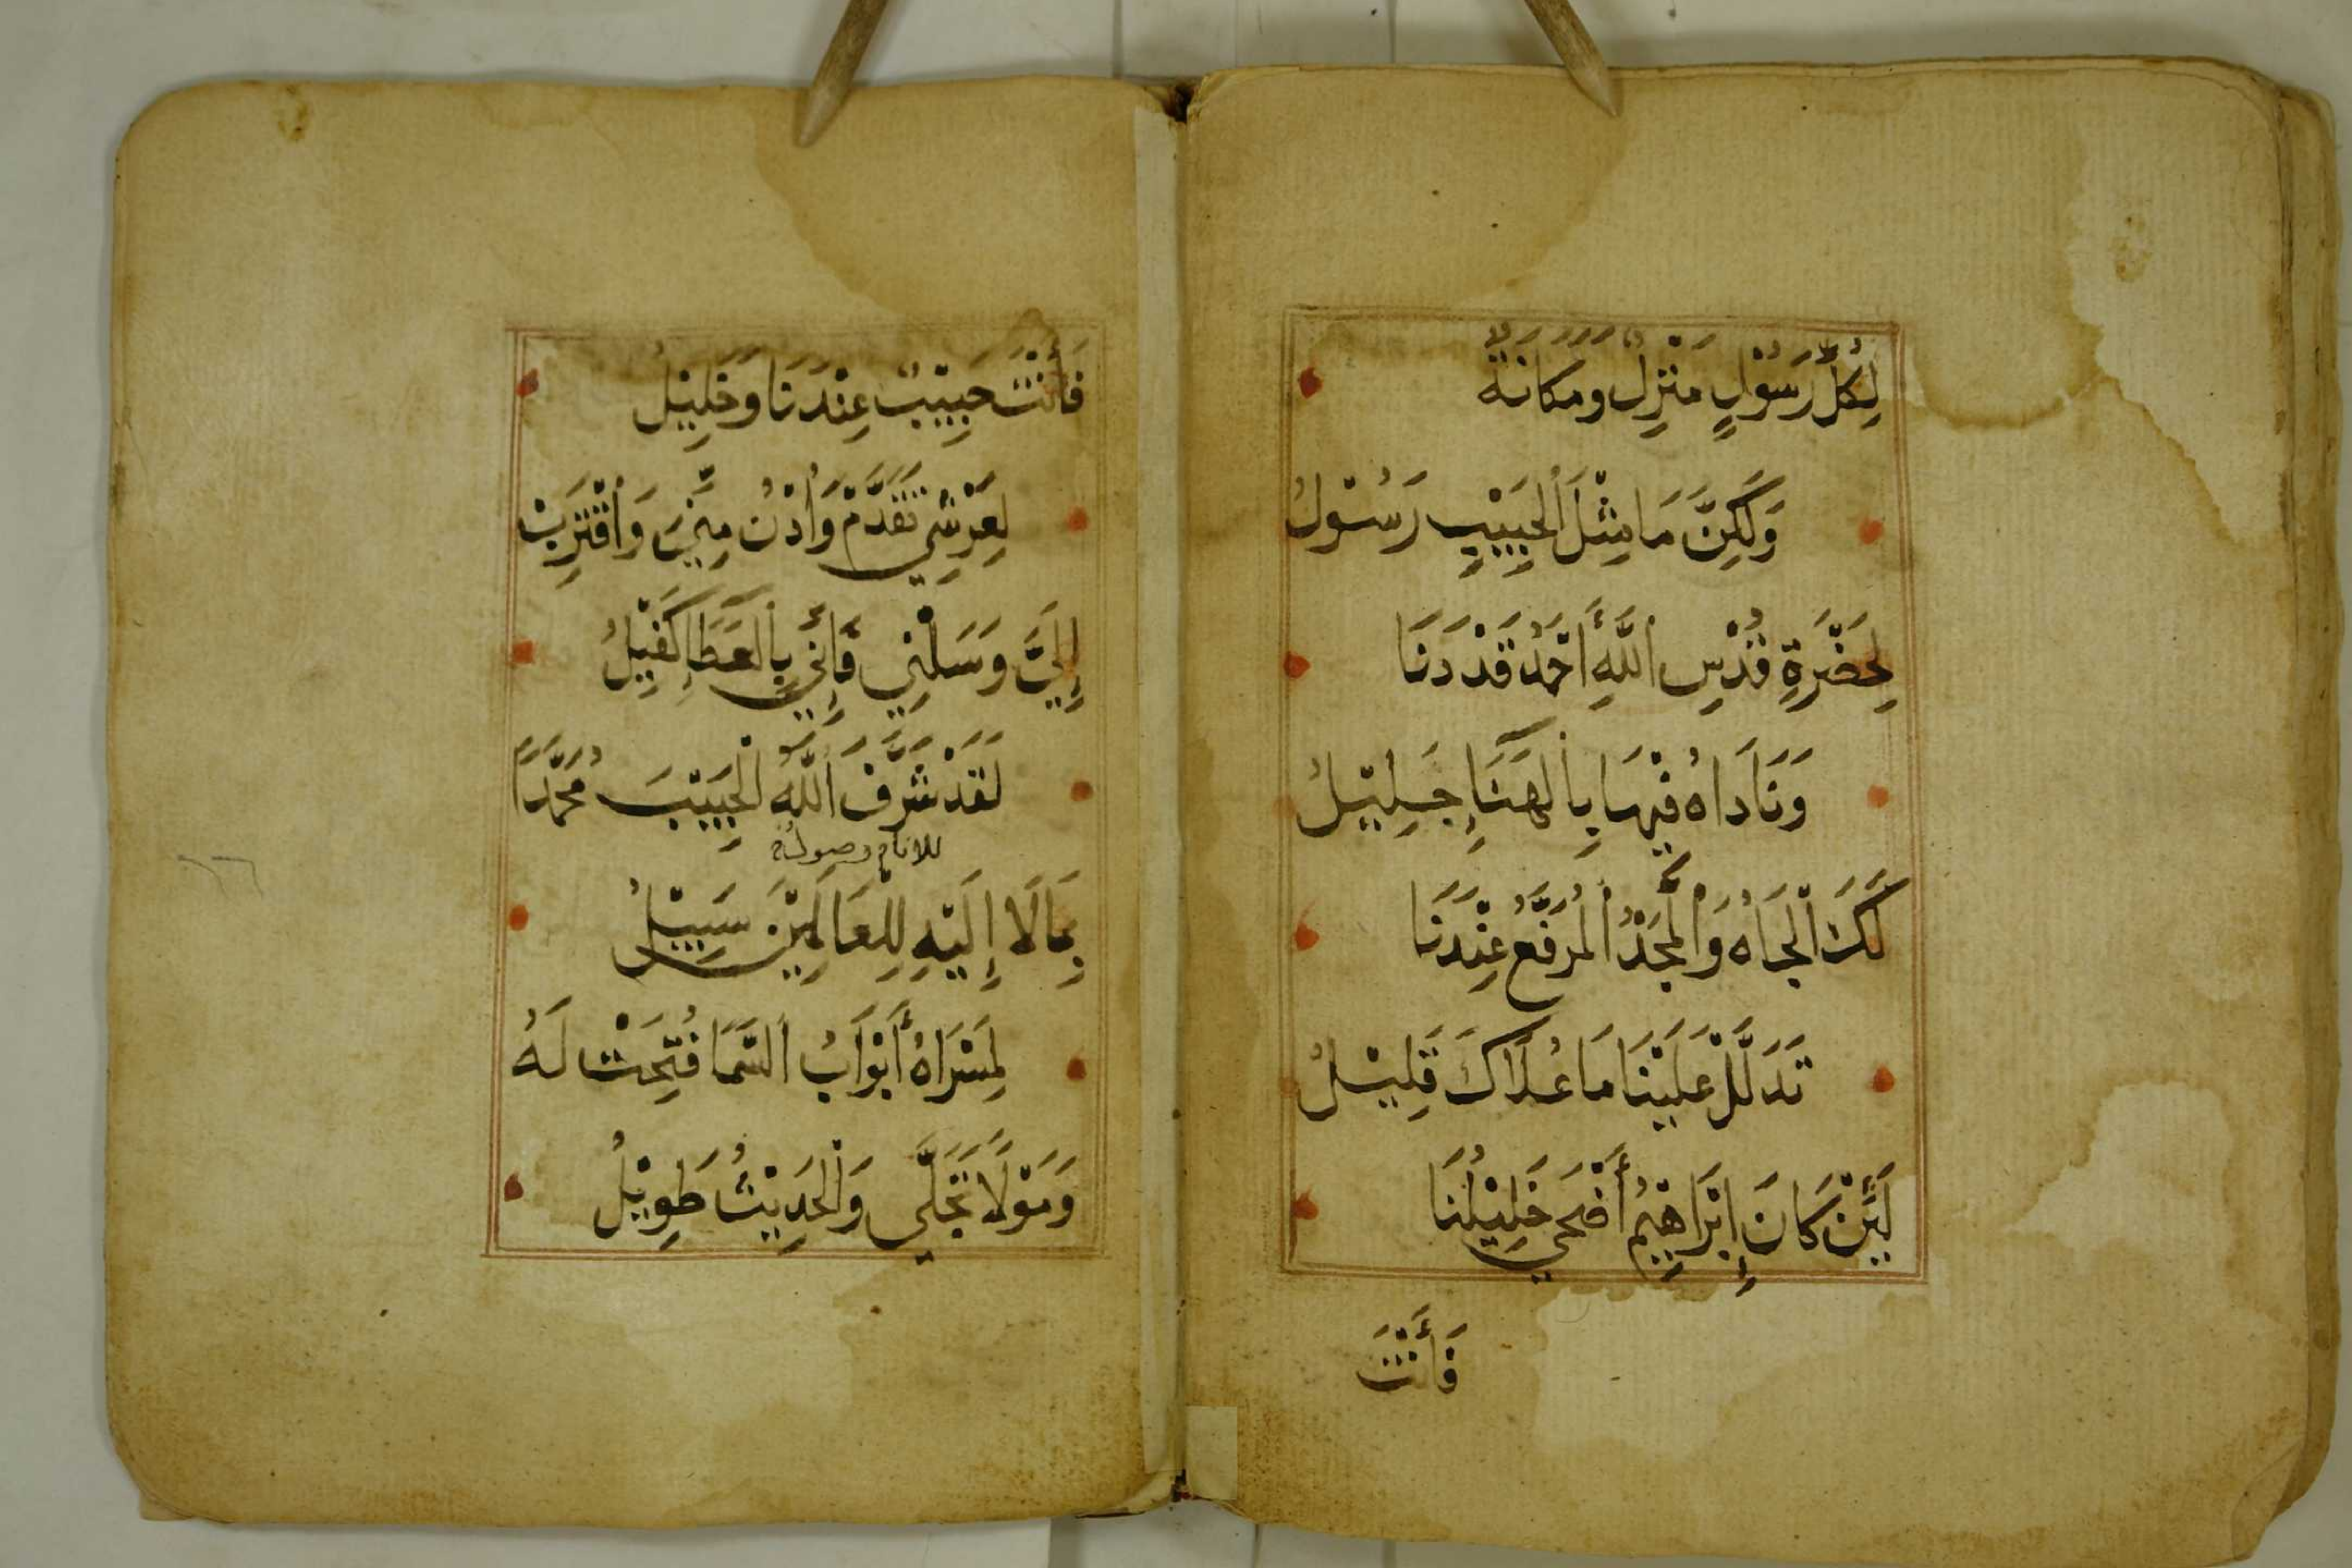 لِكُلِّ رَسُوْلٍ مَنْزِلٌ وَمَكَانَةٌ
وَلَكِنَّ مَا مِثْلَ الْحَبِيْبِ رَسُوْلُ
لِحَضْرَةِ قُدْسِ اللَّهِ أَحْمَدُ قَدْ دَنَا
وَنَادَاهُ فِيْهَا بِالْهَنَاءِ جَلِيْلُ
لَكَ الْجَاهُ وَالْمَجْدُ الْمُرَفَّعُ عِنْدَنَا
تَدَلَّلْ عَلَيْنَا مَا عُلَاكَ قَلِيْلُ
لَئِنْ كَانَ إِبْرَاهِيْمُ أَضْحَى خَلِيْلُنَا
فَأَنْتَ
فَأَنْتَ حَبِيْبٌ عِنْدَنَا وَخَلِيْلُ
لِعَرْشِي تَقَدَّمْ وَادْنُ مِنِّي وَاقْتَرِبْ
إِلَيَّ وَسَلْنِي فَإِنِّي بِالْعَطَاءِ كَفِيْلُ
لَقَدْ شَرَّفَ اللَّهُ الْحَبِيْبَ مُحَمَّدًا
للانام وصوله
بِمَا لَا إِلَيْهِ لِلْعَالَمِيْنَ سَبِيْلُ
لِمَسْرَاهُ أَبْوَابُ السَّمَا فُتِحَتْ لَهُ
وَمَوْلَاهُ تَجَلَّى وَالْحَدِيْثُ طَوِيْلُ